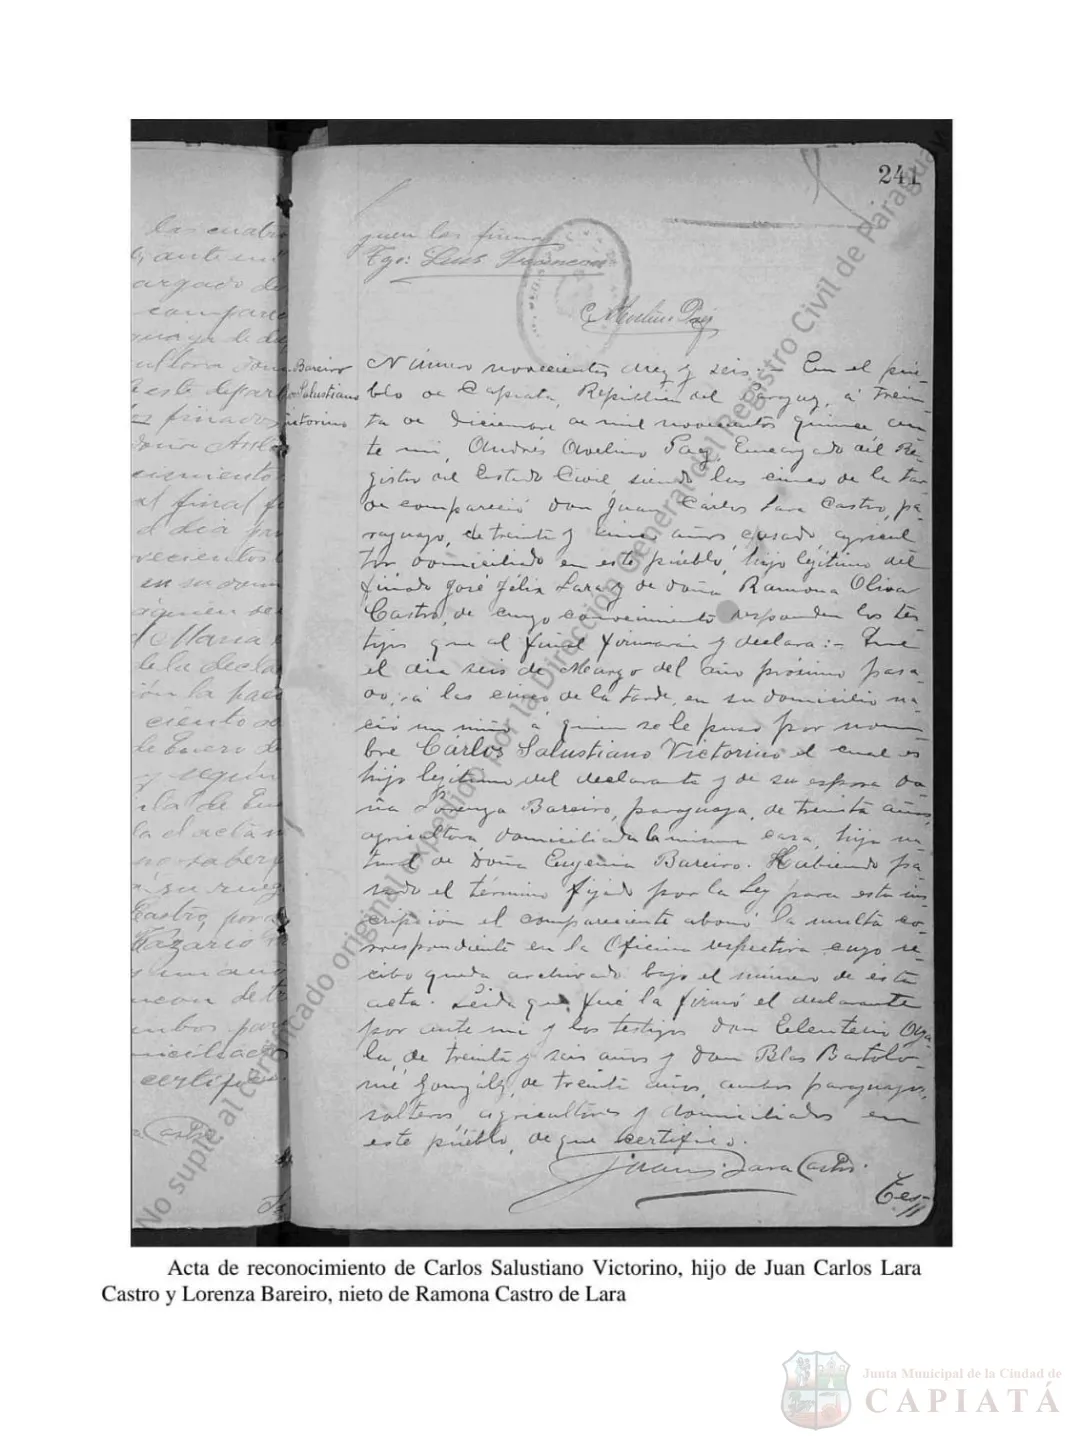 241
quien los firma
Tgo: Luis
las cuatro
ante mi
argado de
compare
este depar
finado
cimiento
al final fi
el dia
en su dom
de la decla
ciento
de Enero de
y según
Castro, por
Nazario
certifico
Bareiro
Salustiano
Victorino
Número novecientos diez y seis:- En el pue-
blo de Capiatá, República del Paraguay, á trein-
ta de Diciembre de mil novecientos quince an-
te mi, Andrés Avelino Paez, Encargado del Re-
gistro del Estado Civil siendo las cinco de la tar-
de compareció don Juan Cárlos Lara Castro, pa-
raguayo, de treinta y cinco años, casado, agricul-
tor domiciliado en este pueblo, hijo legítimo del
finado José Félix Lara y de doña Ramona Oliva
Castro, de cuyo conocimiento responden los tes-
tigos que al final firmarán y declara:- Que
el dia seis de Marzo del año próximo pasa-
do, á las cinco de la tarde, en su domicilio na-
ció un niño á quien se le puso por nom-
bre Cárlos Salustiano Victorino el cual es
hijo legítimo del declarante y de su esposa do-
ña Lorenza Bareiro, paraguaya, de treinta años,
agricultora domiciliada la misma casa, hija na-
tural de Doña Eugenia Bareiro. Habiendo pa-
sado el término fijado por la Ley para esta ins-
cripción el compareciente abonó la multa co-
rrespondiente en la Oficina respectiva cuyo re-
cibo queda archivado bajo el número de esta
acta. Leida que fué la firmó el declarante
por ante mi y los testigos don Eleuterio Oya-
la, de treinta y seis años y don Blas Bartolo-
mé González, de treinta años, ambos paraguayos,
solteros, agricultores y domiciliados en
este pueblo, de que certifico.
Juan C. Lara Castro.
No suple al certificado original expedido por la Dirección General del Registro Civil de Paraguay
Acta de reconocimiento de Carlos Salustiano Victorino, hijo de Juan Carlos Lara
Castro y Lorenza Bareiro, nieto de Ramona Castro de Lara
Junta Municipal de la Ciudad de
CAPIATÁ